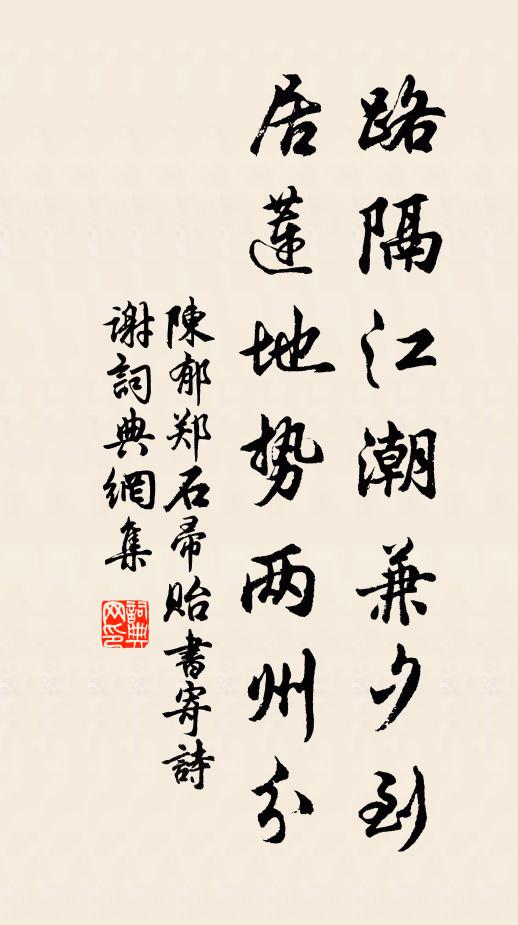 路隔江潮兼夕到
居莲地势两州分
陳郁郑石帚贻書寄詩
谢詞典網集
詞典网印